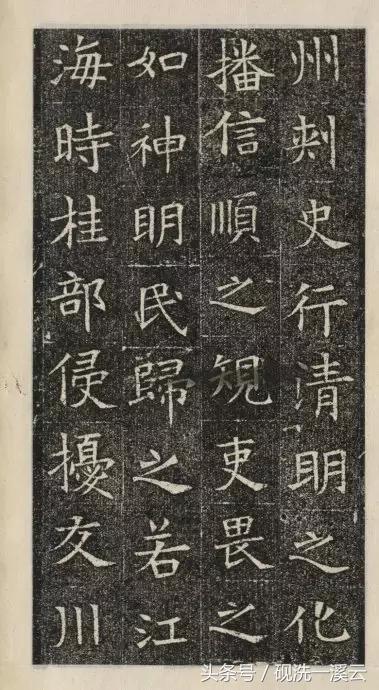 州刾史行清明之化
播信順之䂓吏畏之
如神明民歸之若江
海時桂部侵擾交川
头条号 / 砚洗一溪云